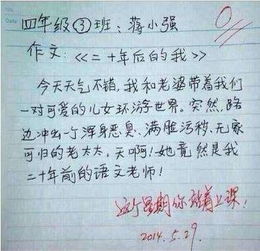 四年级③班：蒋小强
0
作文：《二十年后的我》
今天天气不错，我和老婆带着我们
一对可爱的儿女环游世界，突然，路
边冲出一个浑身恶臭、满脸污秽、无家
可归的老太太，天啊！她竟然是我
二十年前的语文老师！
这个星期你站着上课！
2014.5.29